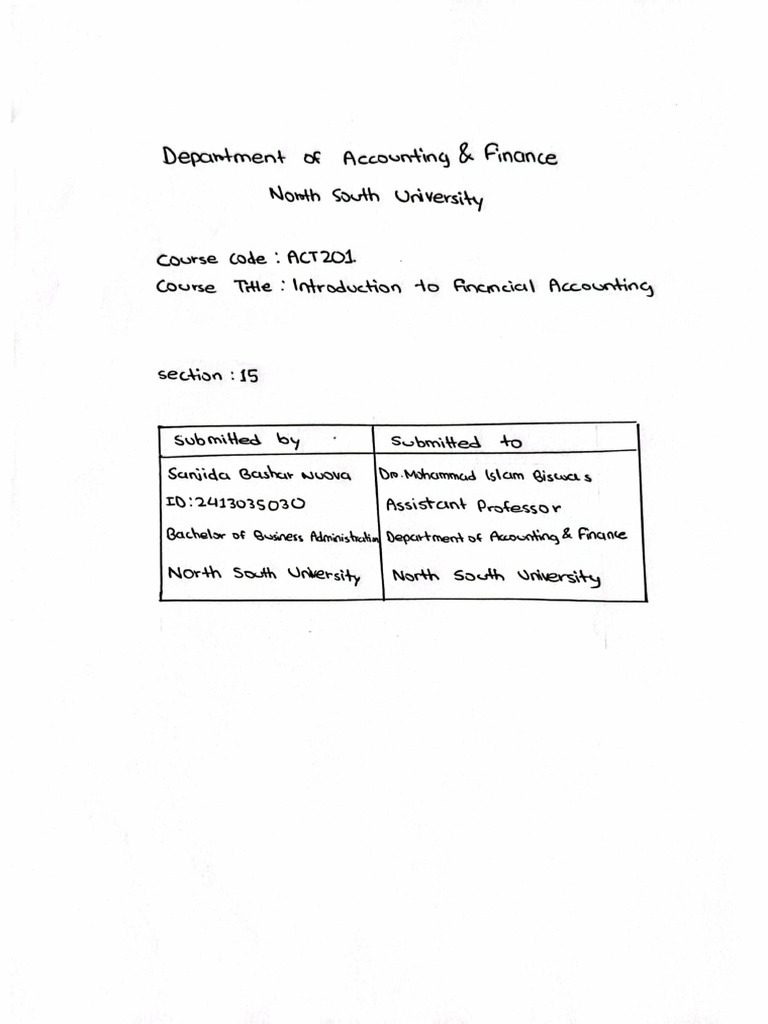 Department of Accounting & Finance
North South University
Course Code : ACT201.
Course Title : Introduction to Financial Accounting
section : 15
Submitted by
Submitted to
Sanjida Bashar Nuova
Dr. Mohammad Islam Biswas
ID:2413035030
Assistant Professor
Bachelor of Business Administration
Department of Accounting & Finance
North South University
North South University